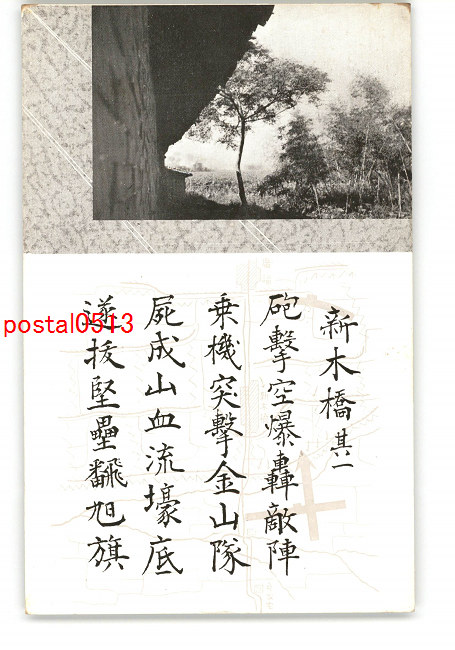 新木橋 其一
砲擊空爆轟敵陣
乗機突擊金山隊
屍成山血流壕底
遂拔堅壘飜旭旗
postal0513